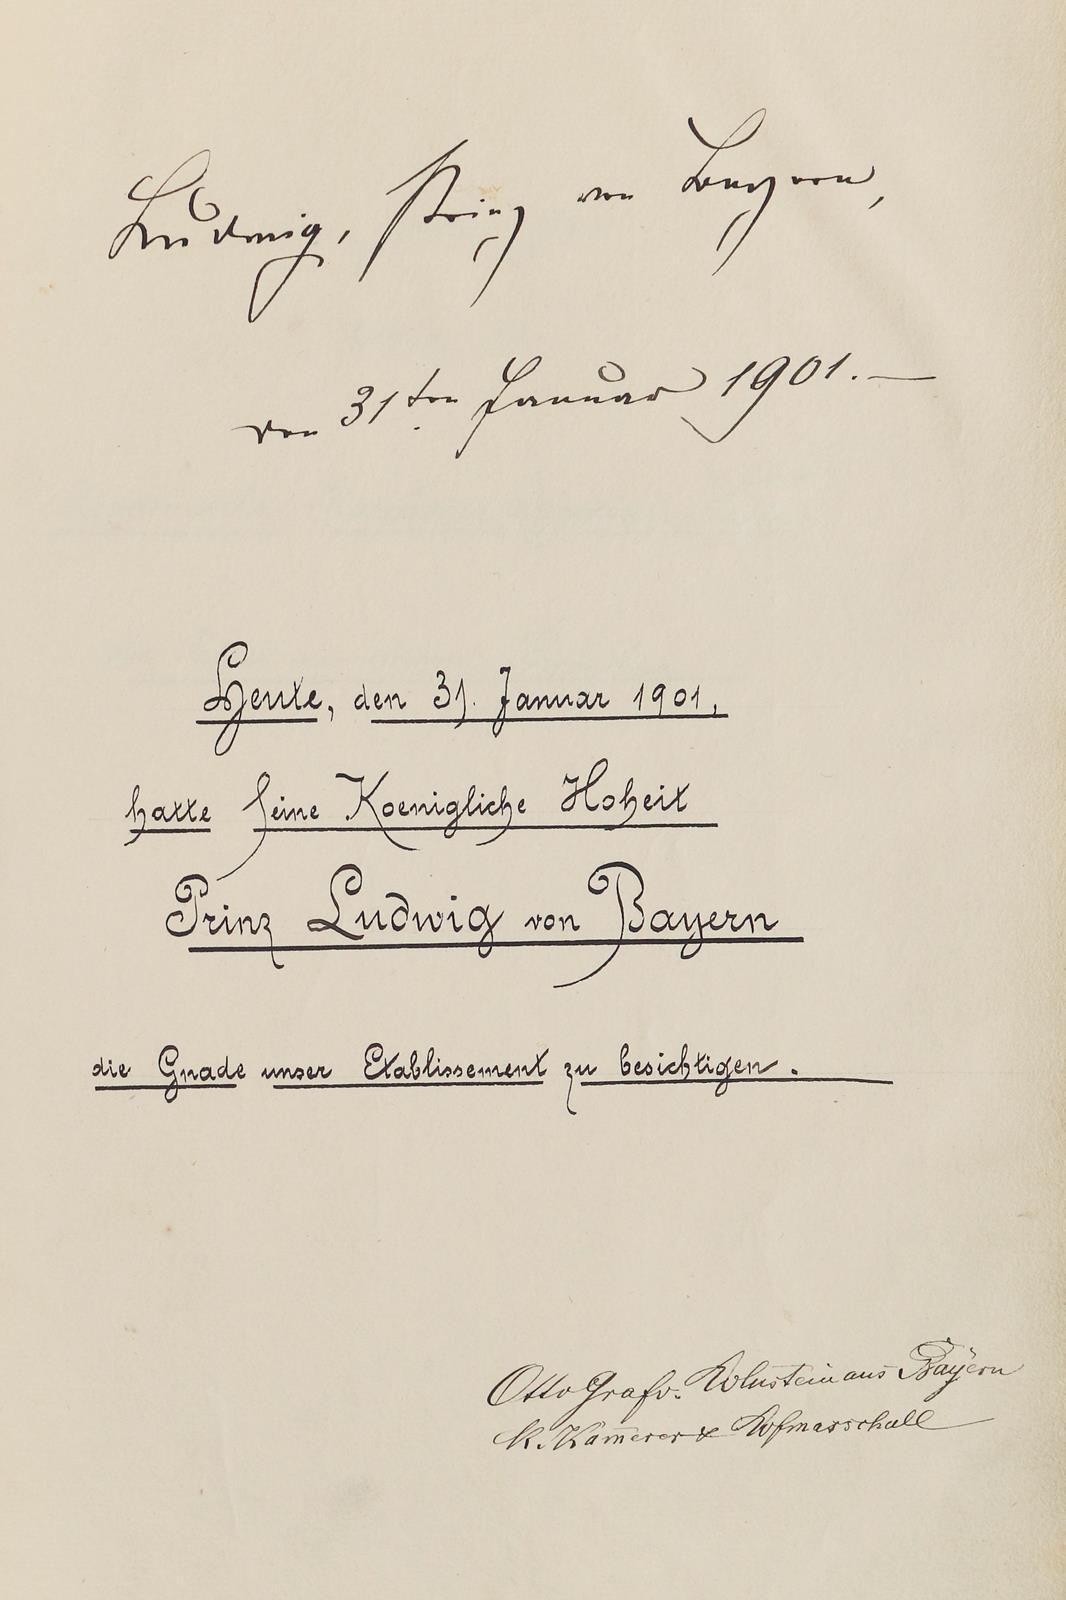 Ludwig, Prinz von Bayern,
den 31ten Januar 1901.—
Heute, den 31. Januar 1901,
hatte Seine Koenigliche Hoheit
Prinz Ludwig von Bayern
die Gnade unser Etablissement zu besichtigen.
Otto Graf v. Holnstein aus Bayern
K. Kam̅erer & Hofmarschall